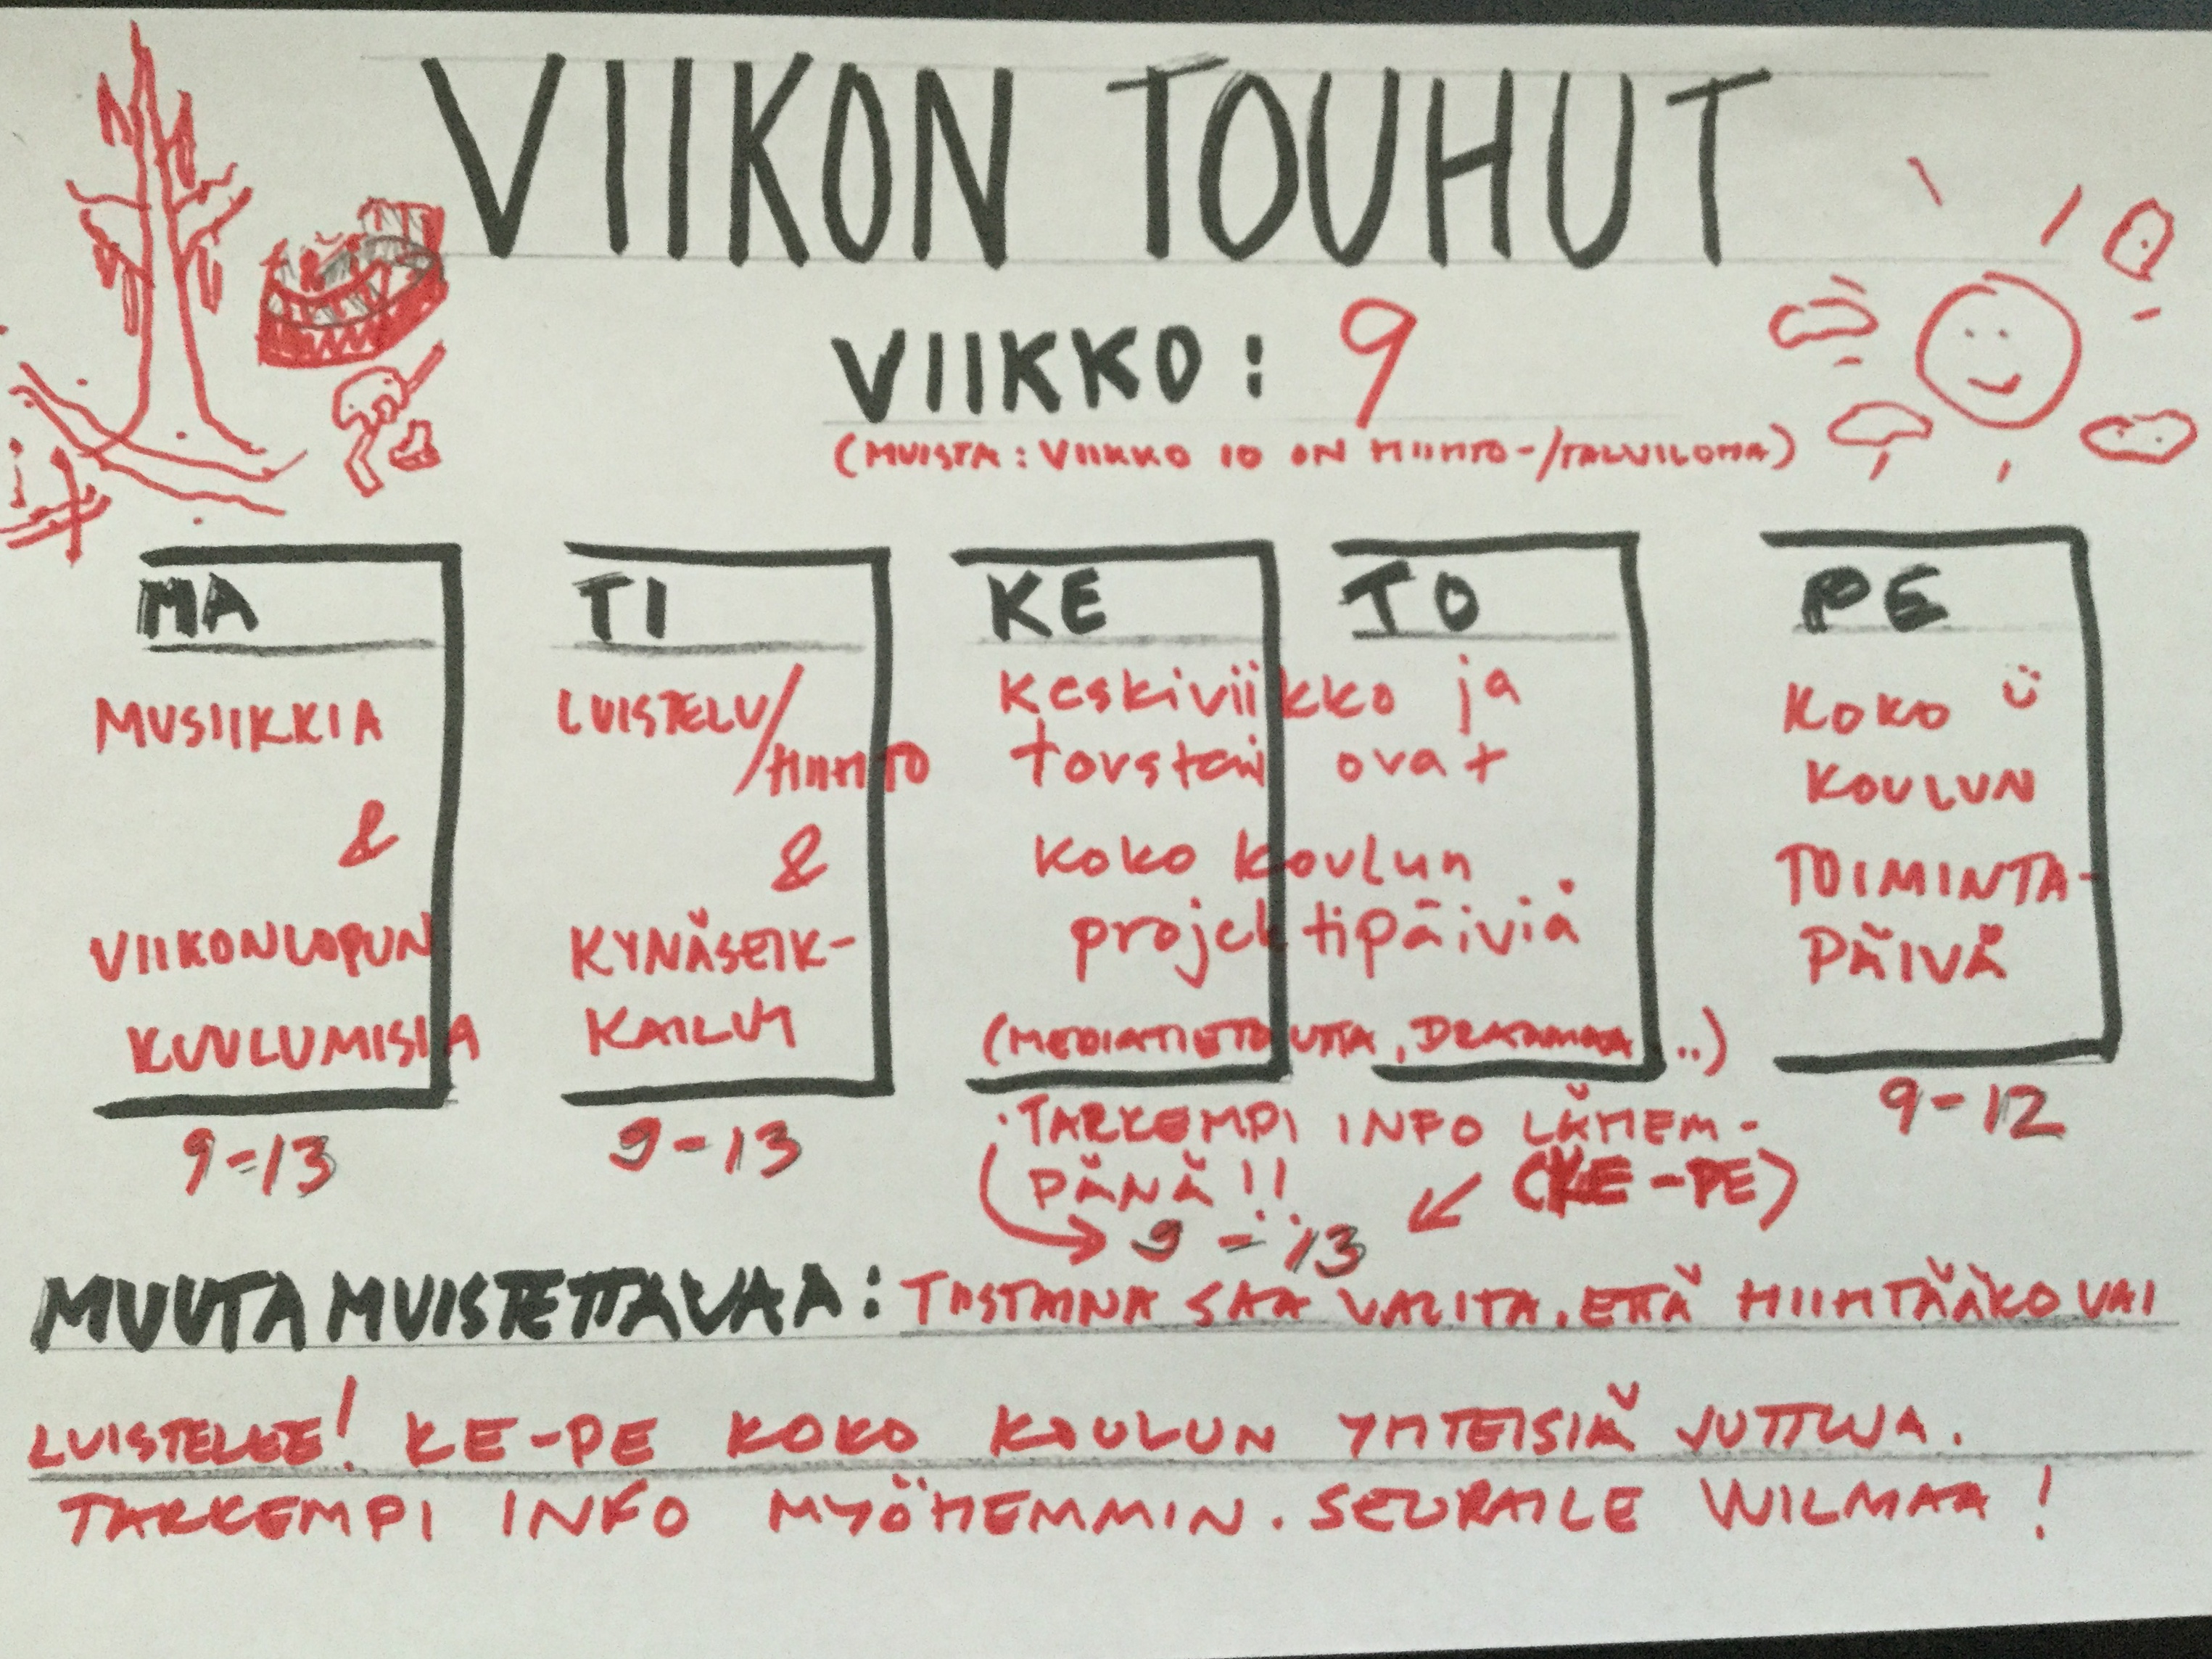 VIIKON TOUHUT
VIIKKO: 9
(MUISTA: VIIKKO 10 ON HIIHTO-/TALVILOMA)
MA
MUSIIKKIA
&
VIIKONLOPUN
KUULUMISIA
9-13
TI
LUISTELU/
HIIHTO
&
KYNÄSEIK-
KAILUA
9-13
KE TO
Keskiviikko ja
torstai ovat
koko koulun
projektipäiviä
(MEDIATIETOUTTA, DRAAMAA...)
TARKEMPI INFO LÄHEM-
PÄNÄ!! (KE-PE)
9-13
PE
KOKO ü
KOULUN
TOIMINTA-
PÄIVÄ
9-12
MUUTA MUISTETTAVAA: TIISTAINA SAA VALITA, ETTÄ HIIHTÄÄKÖ VAI
LUISTELEE! KE-PE KOKO KOULUN YHTEISIÄ JUTTUJA.
TARKEMPI INFO MYÖHEMMIN. SEURAILE WILMAA!